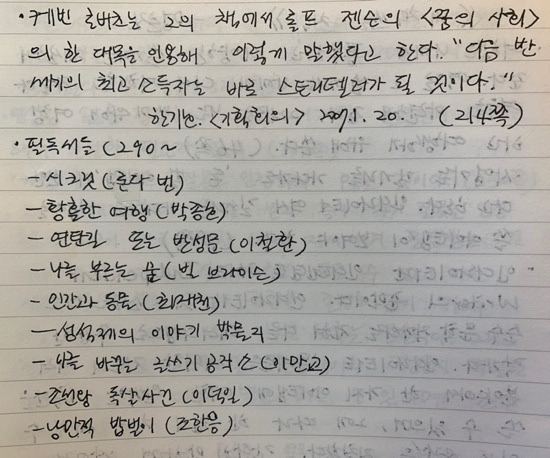 · 케빈 로버츠는 그의 책에서 롤프 젠슨의 <꿈의 사회>
의 한 대목을 인용해 이렇게 말했다고 한다. "다음 반
세기의 최고 소득자는 바로 스토리텔러가 될 것이다."
한기호. <기획회의> 2007. 1. 20. (214쪽)
· 필독서들 (290~
- 시크릿 (론다 번)
- 황홀한 여행 (박종호)
- 연탄길 또는 반성문 (이철환)
- 나를 부르는 숲 (빌 브라이슨)
- 인간과 동물 (최재천)
- 성석제의 이야기 박물지
- 나를 바꾸는 글쓰기 공작소 (이만교)
- 조선왕 독살사건 (이덕일)
- 낭만적 밥벌이 (조한웅)